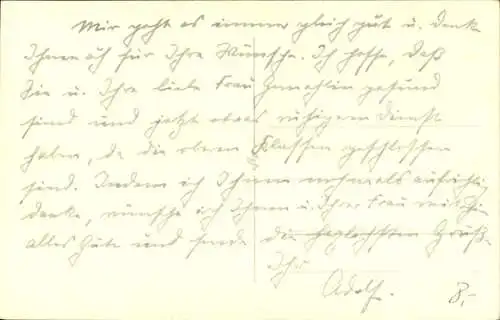 Mir geht es immer gleich gut u. danke
Ihnen für Ihre Wünsche. Ich hoffe, daß
Sie u. Ihre liebe Frau Gemahlin gesund
sind und jetzt etwas ruhigeren Dienst
haben, da die oberen Klassen geschlossen
sind. Indem ich Ihnen nochmals aufrichtig
danke, wünsche ich Ihnen u. Ihrer Frau weiterhin
alles Gute und sende die herzlichsten Grüße
Ihr
Adolf.
8,-